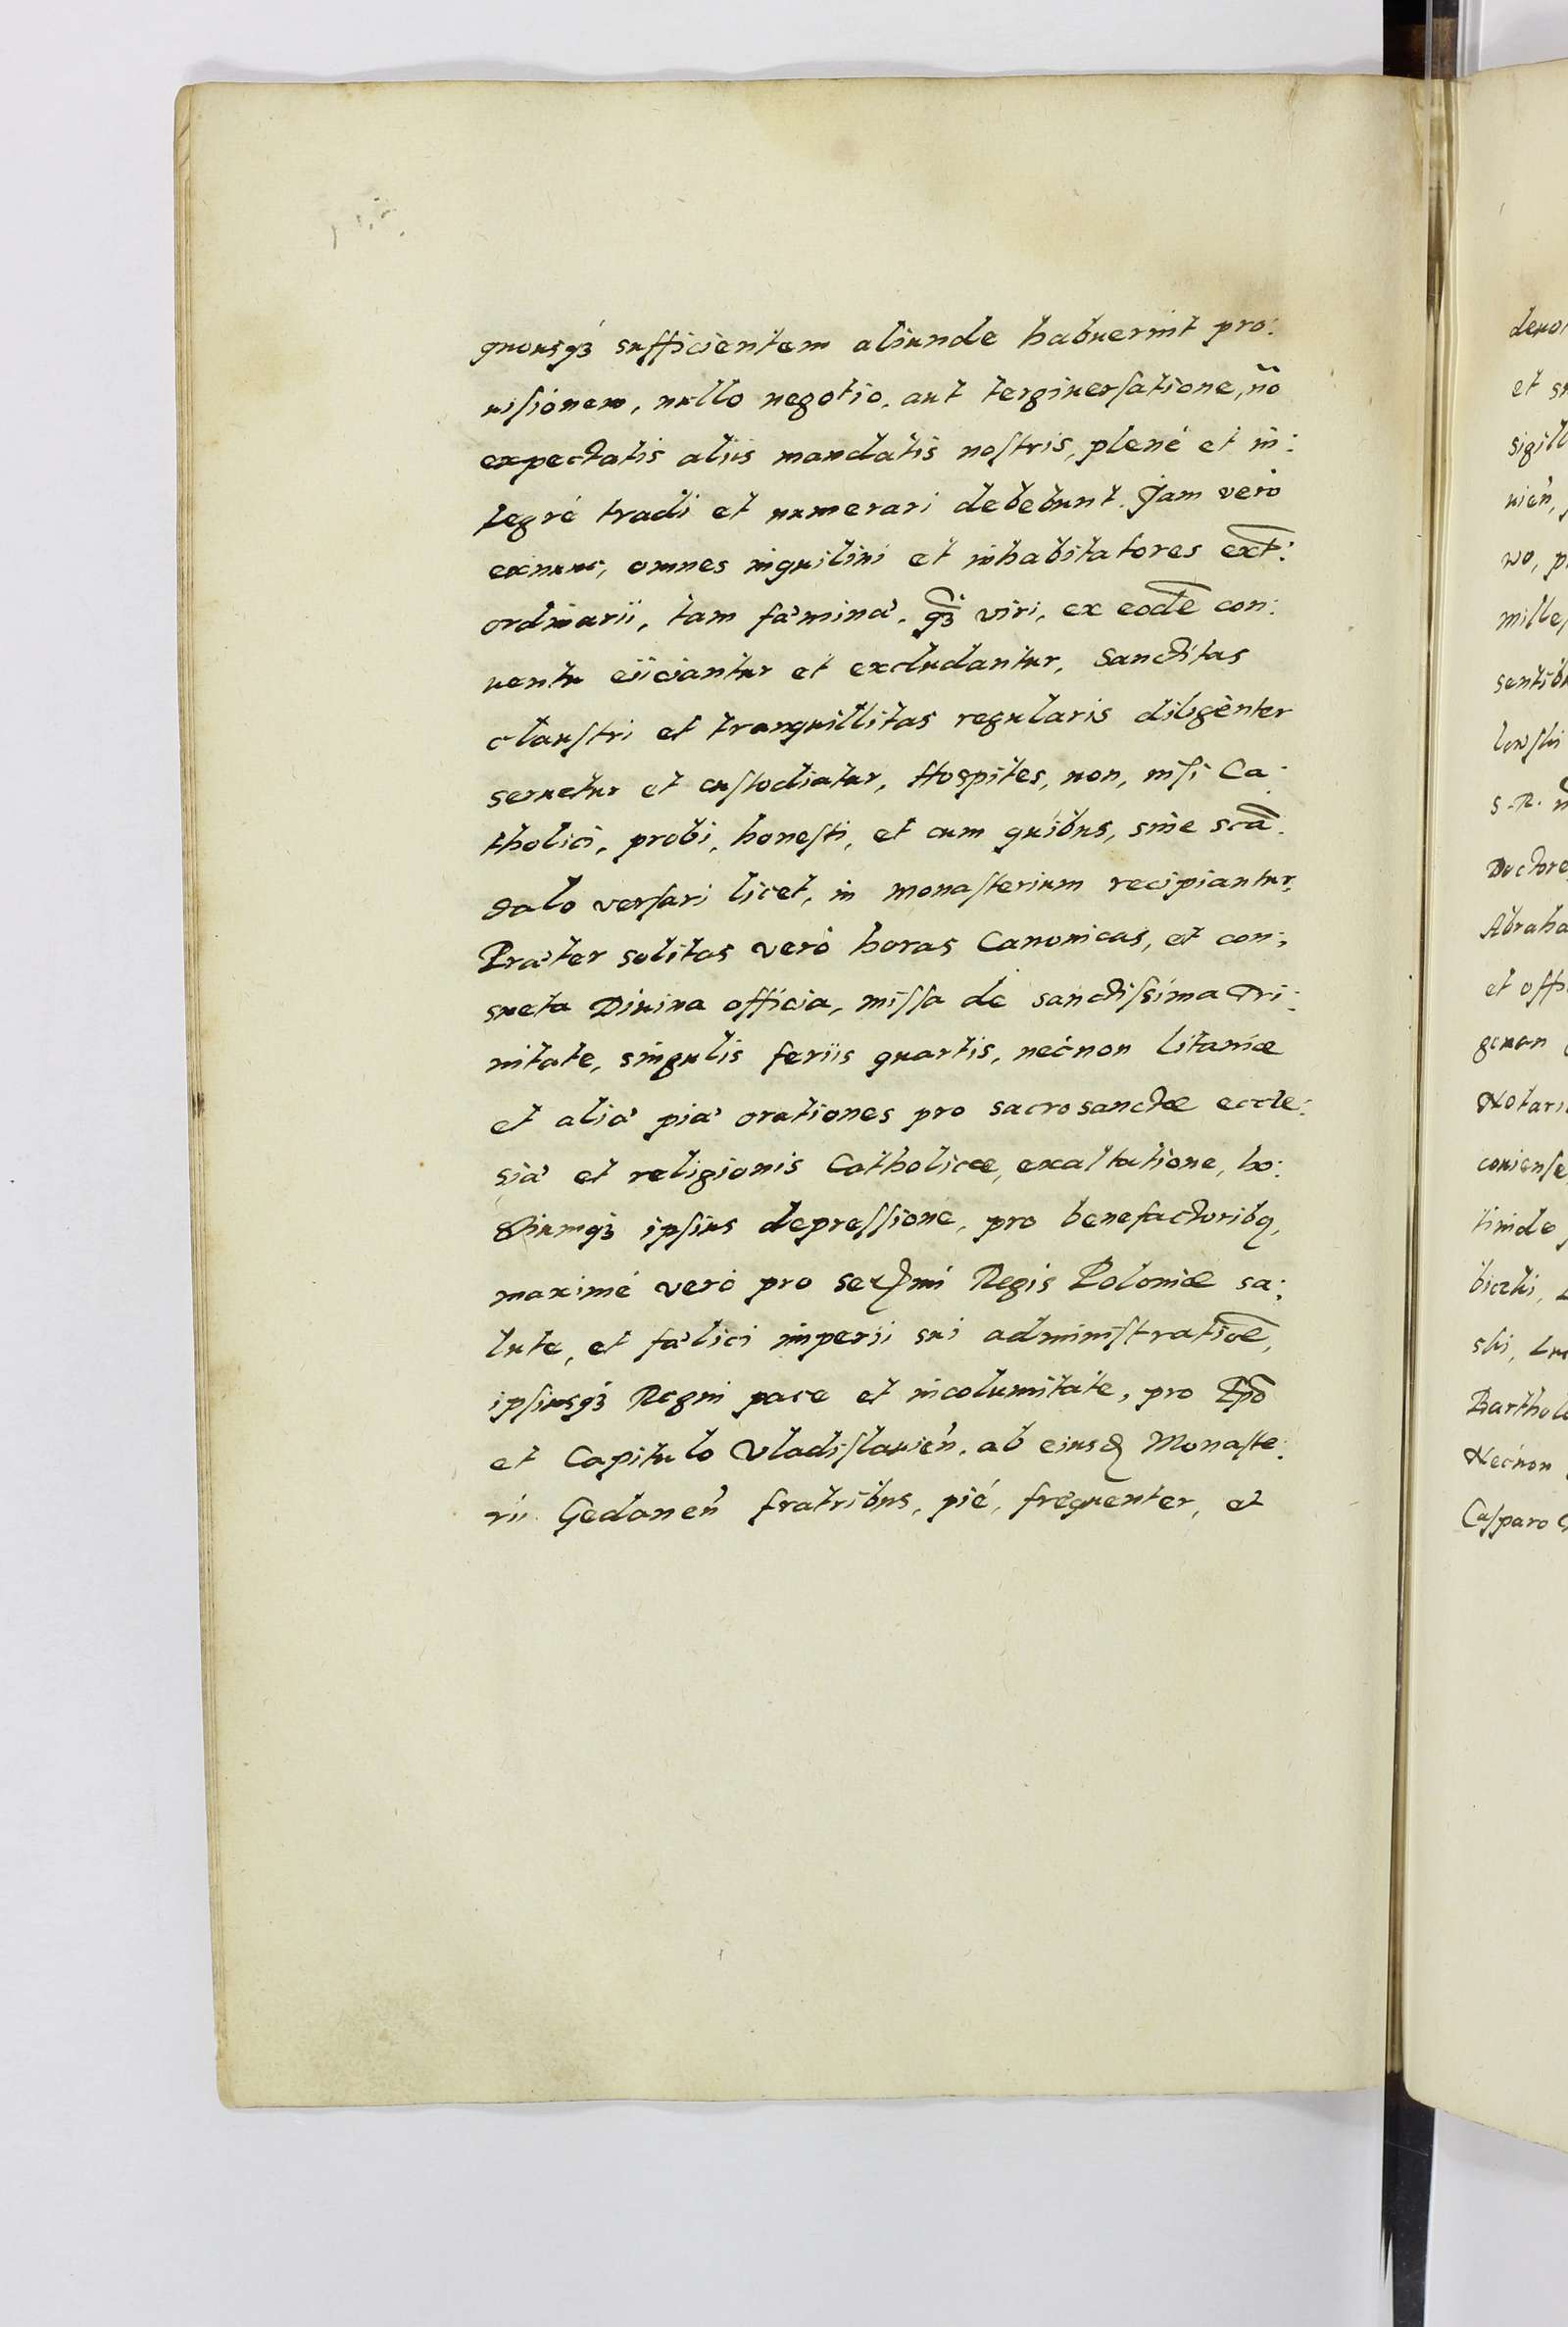 quousqȝ sufficientem aliunde habuerint pro:
uisionem, nullo negotio, aut tergiuersatione, nõ
expectatis aliis mandatis nostris, plenè et in:
tegrè tradi et numerari debebunt. Jam verò
exnunc, omnes inquilini et inhabitatores ext̃:
ordinarii, tam fæminæ, qȝ̃ viri, ex eodẽ con:
uentu eiiciantur et excludantur, Sanctitas
claustri et tranquillitas regularis diligenter
seruetur et custodiatur, Hospites, non, nisi Ca:
tholici, probi, honesti, et cum quibus, sine scã:
dalo versari licet, in monasterium recipiantur,
Præter solitas verò horas Canonicas, et con:
sueta Diuina officia, missa de sanctissima Tri:
nitate, singulis feriis quartis, necnon litaniæ
et aliæ piæ orationes pro sacrosanctæ eccle:
siæ et religionis Catholicæ, exaltatione, ho:
stiumqȝ ipsius depressione, pro benefactoribꝫ,
maximè verò pro Serᵐⁱ Regis Poloniæ sa:
lute, et fælici imperii sui administratiõe,
ipsiusqȝ Regni pace et incolumitate, pro Ep̃o
et Capitulo Vladislauień. ab eiusd Monaste:
rii Gedaneń fratribus, piè, frequenter, et
deuo
et s
sigill
uień,
no, p
mille
sentib
lonski
S. R.
Doctore
Abraha
et offi
geran
Notari
couiense
hinde
bicki,
ski, Lu
Barthol
Necnon
Casparo